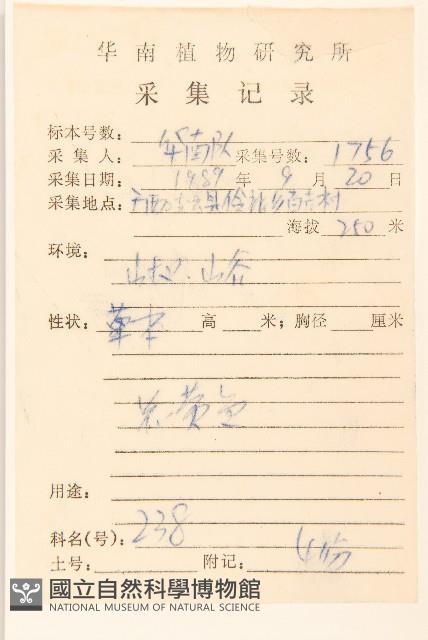 华南植物研究所
采集记录
标本号数：
采集人： 华南队 采集号数： 1756
采集日期： 1989 年 9 月 20 日
采集地点： 广西
海拔 250 米
环境：
山坡、山谷
性状： 草本 高 米；胸径 厘米
黄色
用途：
科名(号)： 238
土号： 附记：
國立自然科學博物館
NATIONAL MUSEUM OF NATURAL SCIENCE